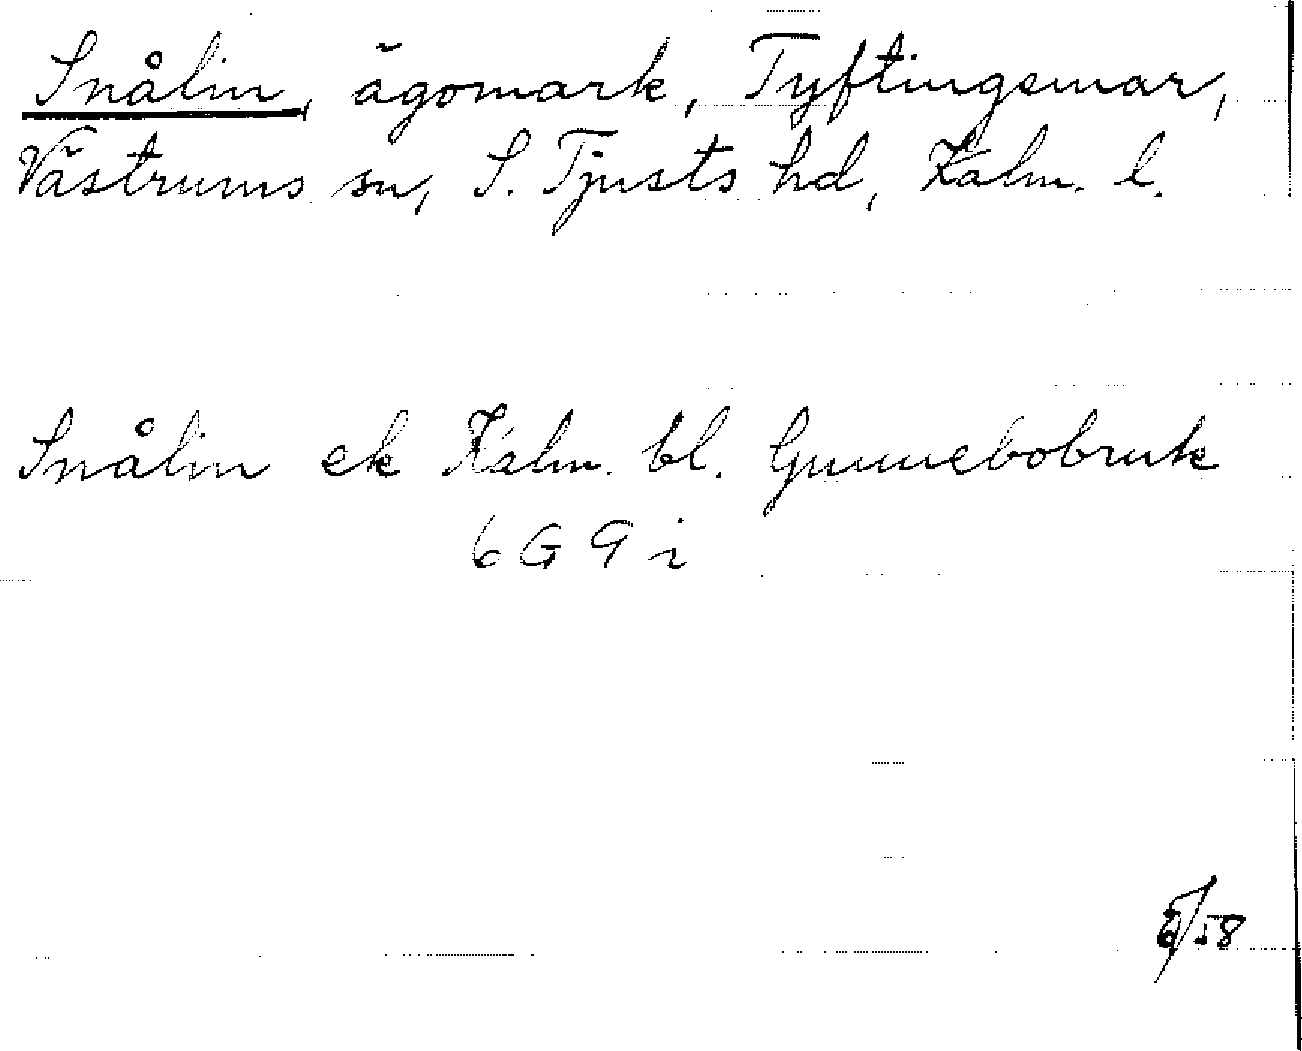 Snålin, ägomark, Tyftingemar,
Västrums sn, S. Tjusts hd, Kalm. l.
Snålin ek Kalm. bl. Gunnebobruk
6 G 9 i
/58